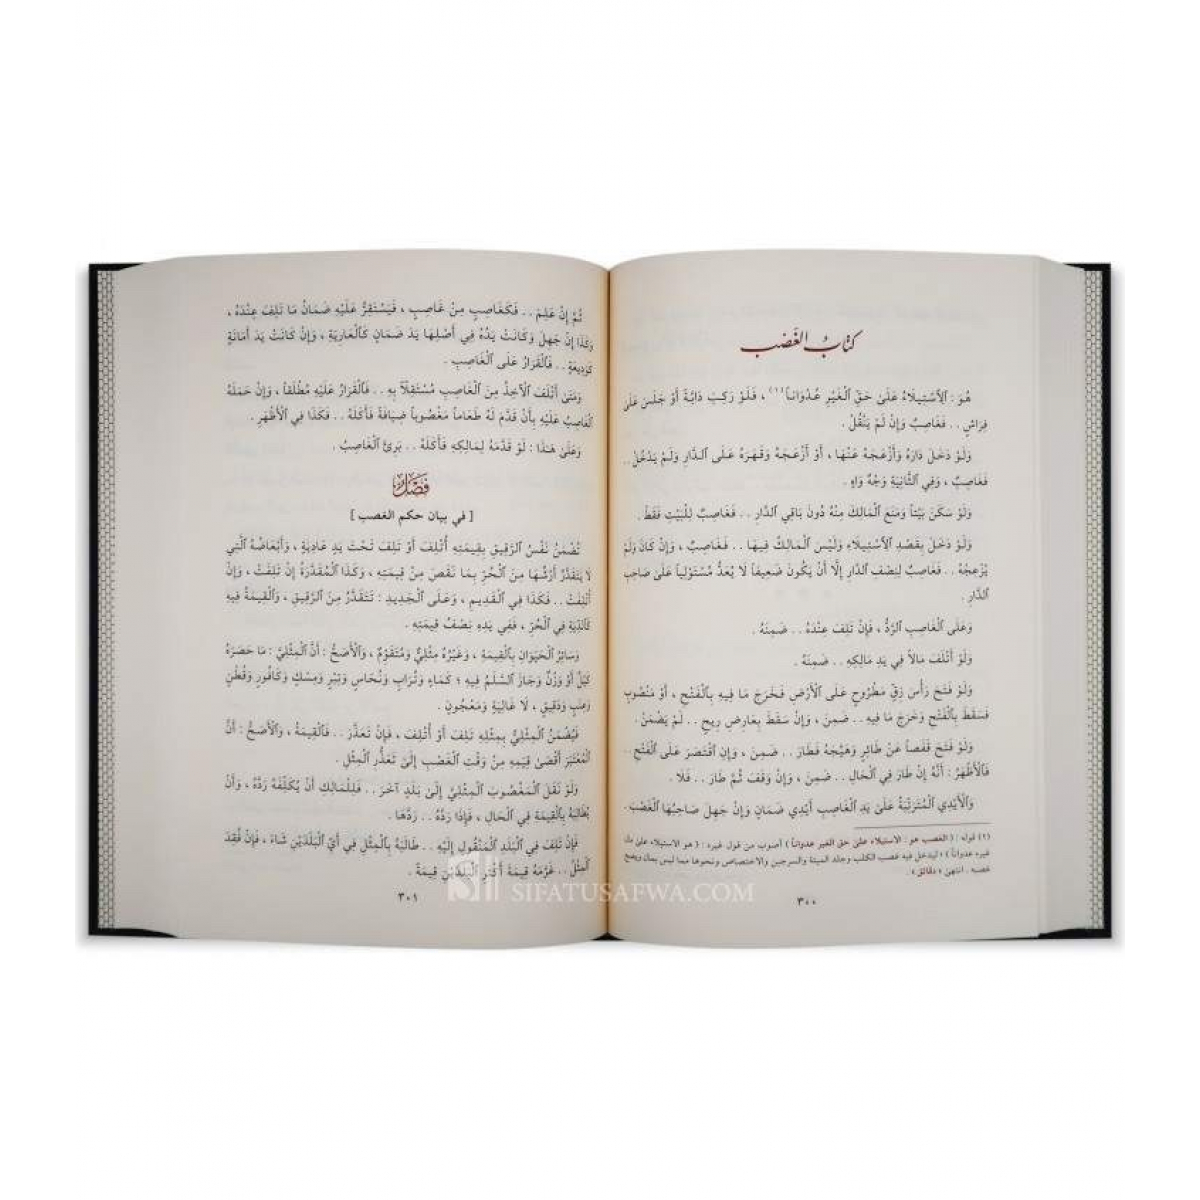 كتاب الغَصْب
هُوَ : ٱلِٱسْتِيلَاءُ عَلَىٰ حَقِّ ٱلْغَيْرِ عُدْوَاناً(١) ، فَلَوْ رَكِبَ دَابَّةً أَوْ جَلَسَ عَلَىٰ
فِرَاشٍ . . فَغَاصِبٌ وَإِنْ لَمْ يَنْقُلْ .
وَلَوْ دَخَلَ دَارَهُ وَأَزْعَجَهُ عَنْهَا ، أَوْ أَزْعَجَهُ وَقَهَرَهُ عَلَى ٱلدَّارِ وَلَمْ يَدْخُلْ . .
فَغَاصِبٌ ، وَفِي ٱلثَّانِيَةِ وَجْهٌ وَاهٍ .
وَلَوْ سَكَنَ بَيْتاً وَمَنَعَ ٱلْمَالِكَ مِنْهُ دُونَ بَاقِي ٱلدَّارِ . . فَغَاصِبٌ لِلْبَيْتِ فَقَطْ .
وَلَوْ دَخَلَ بِقَصْدِ ٱلِٱسْتِيلَاءِ وَلَيْسَ ٱلْمَالِكُ فِيهَا . . فَغَاصِبٌ ، وَإِنْ كَانَ وَلَمْ
يُزْعِجْهُ . . فَغَاصِبٌ لِنِصْفِ ٱلدَّارِ إِلَّا أَنْ يَكُونَ ضَعِيفاً لَا يُعَدُّ مُسْتَوْلِياً عَلَىٰ صَاحِبِ
ٱلدَّارِ .
وَعَلَى ٱلْغَاصِبِ ٱلرَّدُّ ، فَإِنْ تَلِفَ عِنْدَهُ . . ضَمِنَهُ .
وَلَوْ أَتْلَفَ مَالاً فِي يَدِ مَالِكِهِ . . ضَمِنَهُ .
وَلَوْ فَتَحَ رَأْسَ زِقٍّ مَطْرُوحٍ عَلَى ٱلْأَرْضِ فَخَرَجَ مَا فِيهِ بِٱلْفَتْحِ ، أَوْ مَنْصُوبٍ
فَسَقَطَ بِٱلْفَتْحِ وَخَرَجَ مَا فِيهِ . . ضَمِنَ ، وَإِنْ سَقَطَ بِعَارِضِ رِيحٍ . . لَمْ يَضْمَنْ .
وَلَوْ فَتَحَ قَفَصاً عَنْ طَائِرٍ وَهَيَّجَهُ فَطَارَ . . ضَمِنَ ، وَإِنِ ٱقْتَصَرَ عَلَى ٱلْفَتْحِ . .
فَٱلْأَظْهَرُ : أَنَّهُ إِنْ طَارَ فِي ٱلْحَالِ . . ضَمِنَ ، وَإِنْ وَقَفَ ثُمَّ طَارَ . . فَلَا .
وَٱلْأَيْدِي ٱلْمُتَرَتِّبَةُ عَلَىٰ يَدِ ٱلْغَاصِبِ أَيْدِي ضَمَانٍ وَإِنْ جَهِلَ صَاحِبُهَا ٱلْغَصْبَ .
(١) قوله : ( الغصب هو : الاستيلاء علىٰ حق الغير عدواناً ) أصوب من قول غيره : ( هو الاستيلاء علىٰ مال
غيره عدواناً ) ليدخل فيه غصب الكلب وجلد الميتة والسرجين والاختصاص ونحوها مما ليس بمال ويصح
غصبه . انتهىٰ « دقائق » .
٣٠٠
ثُمَّ إِنْ عَلِمَ . . فَكَغَاصِبٍ مِنْ غَاصِبٍ ، فَيَسْتَقِرُّ عَلَيْهِ ضَمَانُ مَا تَلِفَ عِنْدَهُ ،
وَكَذَا إِنْ جَهِلَ وَكَانَتْ يَدُهُ فِي أَصْلِهَا يَدَ ضَمَانٍ كَٱلْعَارِيَةِ ، وَإِنْ كَانَتْ يَدَ أَمَانَةٍ
كَوَدِيعَةٍ . . فَٱلْقَرَارُ عَلَى ٱلْغَاصِبِ .
وَمَتَىٰ أَتْلَفَ ٱلْآخِذُ مِنَ ٱلْغَاصِبِ مُسْتَقِلّاً بِهِ . . فَٱلْقَرَارُ عَلَيْهِ مُطْلَقاً ، وَإِنْ حَمَلَهُ
ٱلْغَاصِبُ عَلَيْهِ بِأَنْ قَدَّمَ لَهُ طَعَاماً مَغْصُوباً ضِيَافَةً فَأَكَلَهُ . . فَكَذَا فِي ٱلْأَظْهَرِ .
وَعَلَىٰ هَـٰذَا : لَوْ قَدَّمَهُ لِمَالِكِهِ فَأَكَلَهُ . . بَرِئَ ٱلْغَاصِبُ .
فَصْلٌ
[ في بيان حكم الغصب ]
تُضْمَنُ نَفْسُ ٱلرَّقِيقِ بِقِيمَتِهِ أُتْلِفَ أَوْ تَلِفَ تَحْتَ يَدٍ عَادِيَةٍ ، وَأَبْعَاضُهُ ٱلَّتِي
لَا يَتَقَدَّرُ أَرْشُهَا مِنَ ٱلْحُرِّ بِمَا نَقَصَ مِنْ قِيمَتِهِ ، وَكَذَا ٱلْمُقَدَّرَةُ إِنْ تَلِفَتْ ، وَإِنْ
أُتْلِفَتْ . . فَكَذَا فِي ٱلْقَدِيمِ ، وَعَلَى ٱلْجَدِيدِ : تَتَقَدَّرُ مِنَ ٱلرَّقِيقِ ، وَٱلْقِيمَةُ فِيهِ
كَٱلدِّيَةِ فِي ٱلْحُرِّ ، فَفِي يَدِهِ نِصْفُ قِيمَتِهِ .
وَسَائِرُ ٱلْحَيَوَانِ بِٱلْقِيمَةِ ، وَغَيْرُهُ مِثْلِيٌّ وَمُتَقَوَّمٌ ، وَٱلْأَصَحُّ : أَنَّ ٱلْمِثْلِيَّ : مَا حَصَرَهُ
كَيْلٌ أَوْ وَزْنٌ وَجَازَ ٱلسَّلَمُ فِيهِ ؛ كَمَاءٍ وَتُرَابٍ وَنُحَاسٍ وَتِبْرٍ وَمِسْكٍ وَكَافُورٍ وَقُطْنٍ
وَعِنَبٍ وَدَقِيقٍ ، لَا غَالِيَةٍ وَمَعْجُونٍ .
فَيُضْمَنُ ٱلْمِثْلِيُّ بِمِثْلِهِ تَلِفَ أَوْ أُتْلِفَ ، فَإِنْ تَعَذَّرَ . . فَٱلْقِيمَةُ ، وَٱلْأَصَحُّ : أَنَّ
ٱلْمُعْتَبَرَ أَقْصَىٰ قِيَمِهِ مِنْ وَقْتِ ٱلْغَصْبِ إِلَىٰ تَعَذُّرِ ٱلْمِثْلِ .
وَلَوْ نَقَلَ ٱلْمَغْصُوبَ ٱلْمِثْلِيَّ إِلَىٰ بَلَدٍ آخَرَ . . فَلِلْمَالِكِ أَنْ يُكَلِّفَهُ رَدَّهُ ، وَأَنْ
يُطَالِبَهُ بِٱلْقِيمَةِ فِي ٱلْحَالِ ، فَإِذَا رَدَّهُ . . رَدَّهَا .
فَإِنْ تَلِفَ فِي ٱلْبَلَدِ ٱلْمَنْقُولِ إِلَيْهِ . . طَالَبَهُ بِٱلْمِثْلِ فِي أَيِّ ٱلْبَلَدَيْنِ شَاءَ ، فَإِنْ فُقِدَ
ٱلْمِثْلُ . . غَرَّمَهُ قِيمَةَ أَكْثَرِ ٱلْبَلَدَيْنِ قِيمَةً .
٣٠١
SIFATUSAFWA.COM